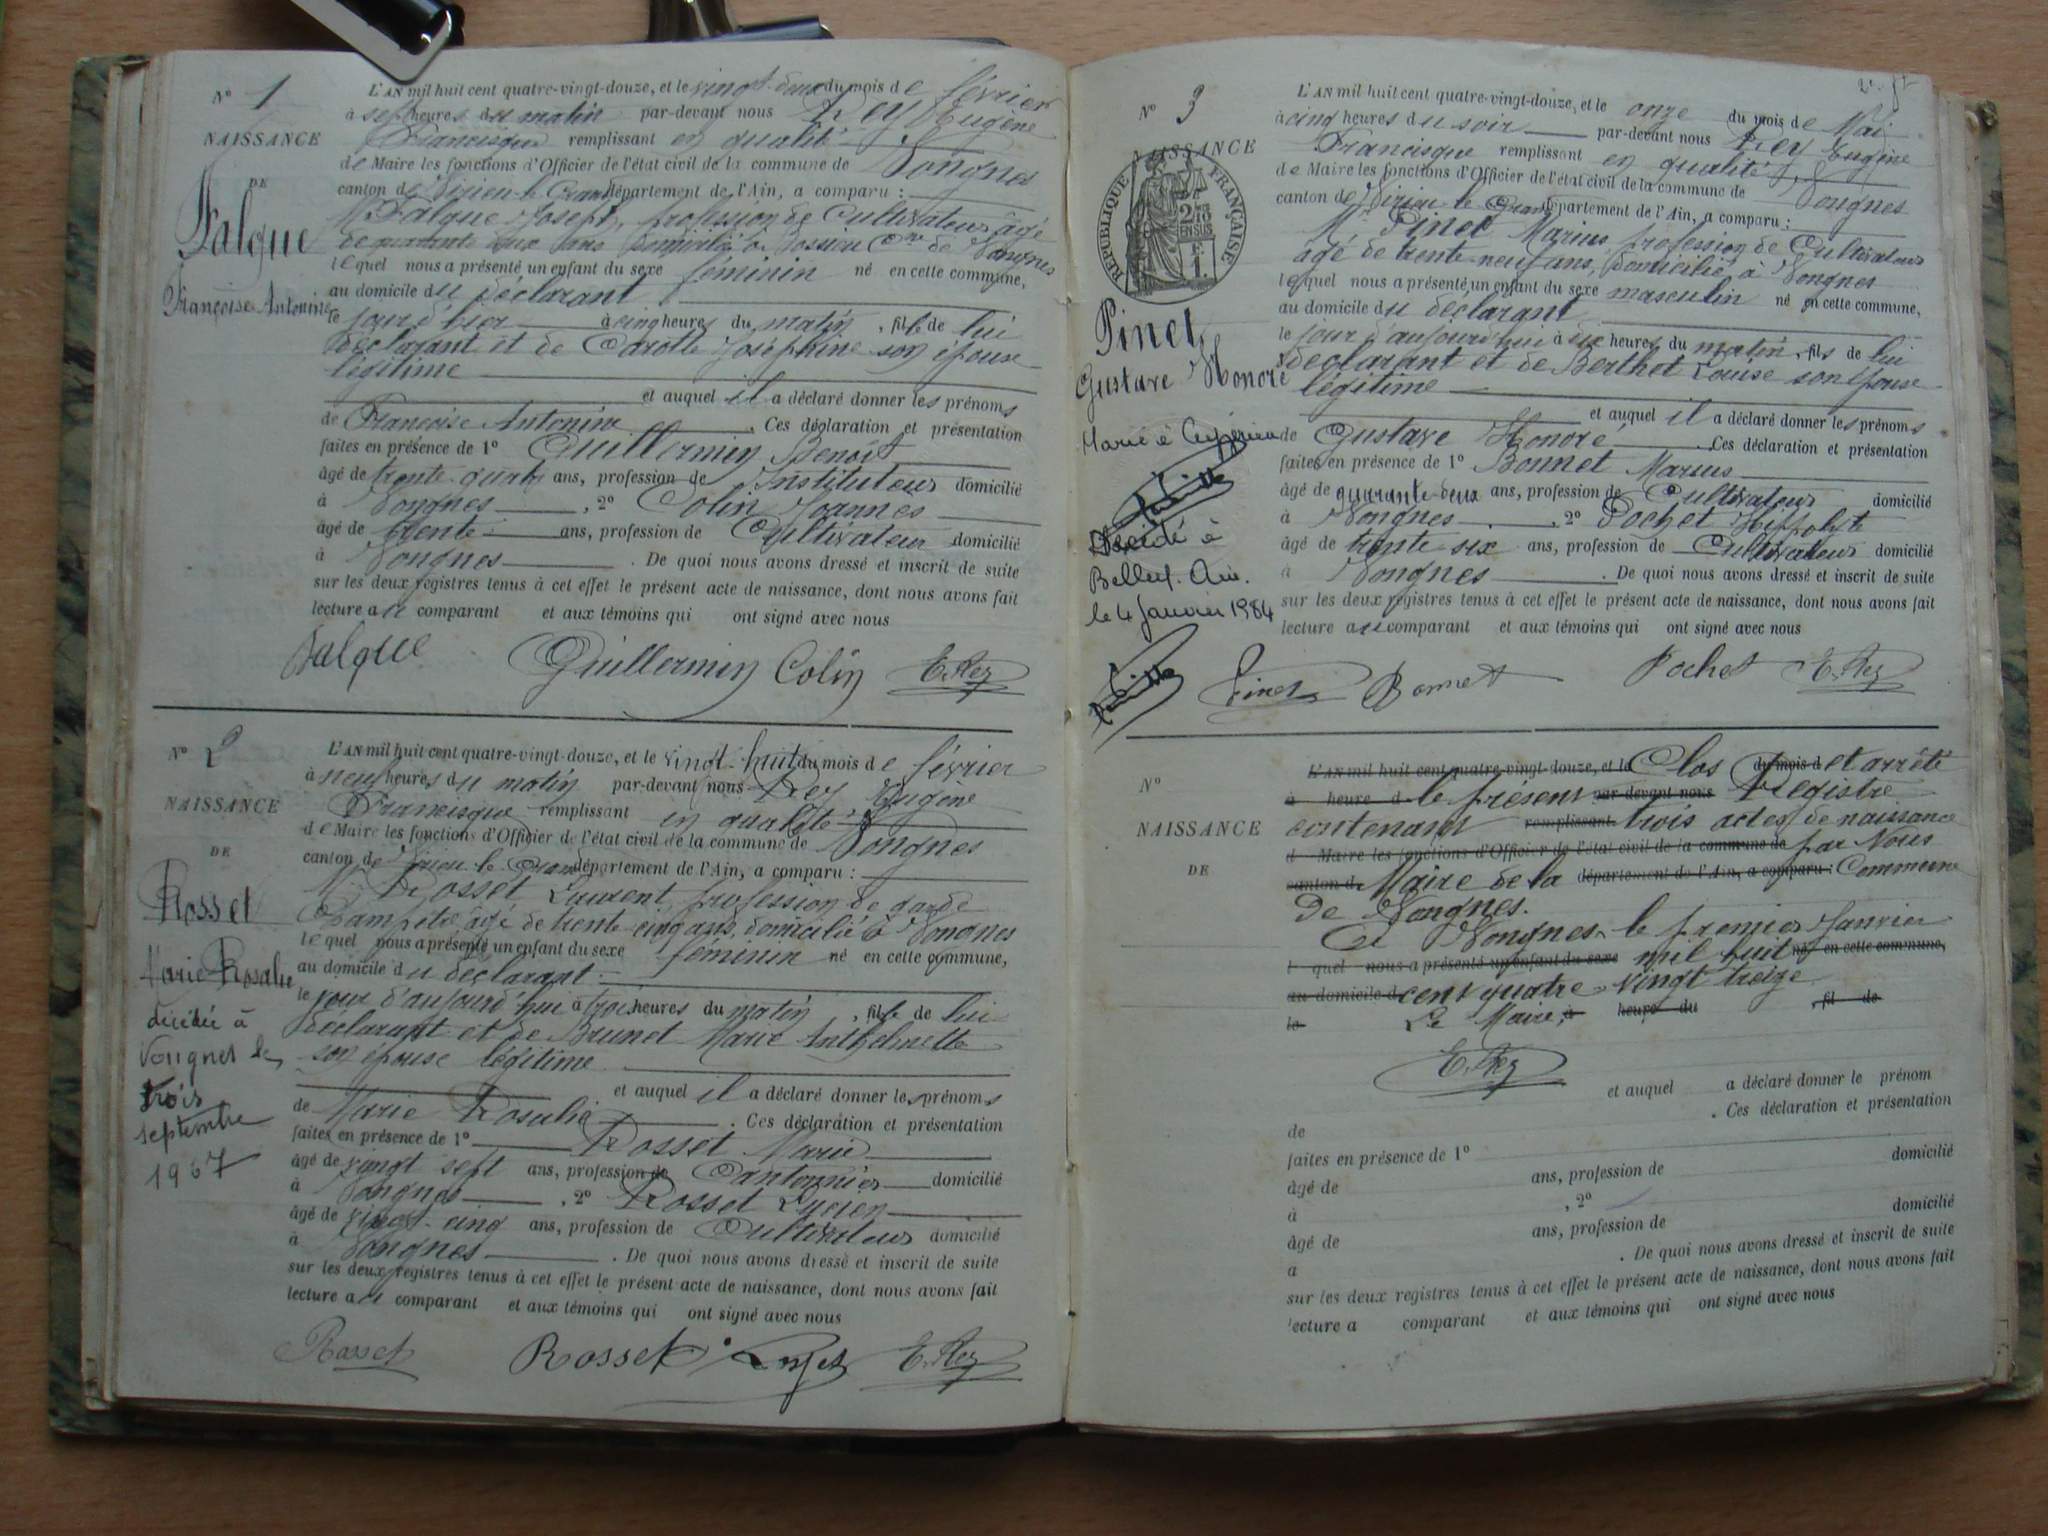 N° 1
NAISSANCE
DE
Falque
Françoise Antonine
L'AN mil huit cent quatre-vingt-douze, et le vingt-deux du mois de février
à sept heures du matin par-devant nous Rey Eugène
Francisque remplissant en qualité
de Maire les fonctions d'Officier de l'état civil de la commune de Vongnes
canton de Virieu-le-Grand département de l'Ain, a comparu :
M. Falque Joseph, profession de Cultivateur âgé
de quarante deux ans domicilié à Cne de Vongnes
lequel nous a présenté un enfant du sexe féminin né en cette commune,
au domicile du déclarant
le jour d'hier à cinq heures du matin, fille de lui
déclarant et de Carotte Joséphine son épouse
légitime
et auquel il a déclaré donner les prénoms
de Françoise Antonine. Ces déclaration et présentation
faites en présence de 1° Guillermin Benoît
âgé de trente quatre ans, profession de Instituteur domicilié
à Vongnes, 2° Colin Joannes
âgé de trente ans, profession de Cultivateur domicilié
à Vongnes. De quoi nous avons dressé et inscrit de suite
sur les deux registres tenus à cet effet le présent acte de naissance, dont nous avons fait
lecture au comparant et aux témoins qui ont signé avec nous
Falque Guillermin Colin E. Rey
N° 2
NAISSANCE
DE
Rosset
Marie Rosalie
décédée à
Vongnes le
trois
septembre
1967
L'AN mil huit cent quatre-vingt-douze, et le vingt-huit du mois de février
à neuf heures du matin par-devant nous Rey Eugène
Francisque remplissant en qualité
de Maire les fonctions d'Officier de l'état civil de la commune de Vongnes
canton de Virieu-le-Grand département de l'Ain, a comparu :
M. Rosset Laurent profession de garde
Champêtre âgé de trente-cinq ans, domicilié à Vongnes
lequel nous a présenté un enfant du sexe féminin né en cette commune,
au domicile du déclarant
le jour d'aujourd'hui à trois heures du matin, fille de lui
déclarant et de Brunet Marie Anthelmette
son épouse légitime
et auquel il a déclaré donner les prénoms
de Marie Rosalie. Ces déclaration et présentation
faites en présence de 1° Rosset Marie
âgé de vingt sept ans, profession de Cantonnier domicilié
à Vongnes, 2° Rosset Lucien
âgé de vingt-cinq ans, profession de Cultivateur domicilié
à Vongnes. De quoi nous avons dressé et inscrit de suite
sur les deux registres tenus à cet effet le présent acte de naissance, dont nous avons fait
lecture au comparant et aux témoins qui ont signé avec nous
Rosset Rosset E. Rey
N° 3
NAISSANCE
RÉPUBLIQUE FRANÇAISE
Pinet
Gustave Honoré
Marié à Ceyzérieu
Décédé à
Belley. Ain.
le 4 Janvier 1984
L'AN mil huit cent quatre-vingt-douze, et le onze du mois de Mai
à cinq heures du soir par-devant nous Rey Eugène
Francisque remplissant en qualité
de Maire les fonctions d'Officier de l'état civil de la commune de Vongnes
canton de Virieu-le-Grand département de l'Ain, a comparu :
M. Pinet Marius profession de Cultivateur
âgé de trente-neuf ans, domicilié à Vongnes
lequel nous a présenté un enfant du sexe masculin né en cette commune,
au domicile du déclarant
le jour d'aujourd'hui à six heures du matin, fils de lui
déclarant et de Berthet Louise son épouse
légitime
et auquel il a déclaré donner les prénoms
de Gustave Honoré. Ces déclaration et présentation
faites en présence de 1° Bonnet Marius
âgé de quarante-deux ans, profession de Cultivateur domicilié
à Vongnes, 2° Pochet Hippolyte
âgé de trente-six ans, profession de Cultivateur domicilié
à Vongnes. De quoi nous avons dressé et inscrit de suite
sur les deux registres tenus à cet effet le présent acte de naissance, dont nous avons fait
lecture au comparant et aux témoins qui ont signé avec nous
Pinet Bonnet Pochet E. Rey
N°
NAISSANCE
DE
L'AN mil huit cent quatre-vingt-douze, et le Clos du mois d et arrêté
à heure d le présent par-devant nous Registre
contenant remplissant trois actes de naissance
d Maire les fonctions d'Officier de l'état civil de la commune de par Nous
canton d Maire de la département de l'Ain, a comparu : Commune
De Vongnes.
A Vongnes, le premier Janvier
l quel nous a présenté un enfant du sexe mil huit né en cette commune,
au domicile d cent quatre-vingt treize
le Le Maire, à heure du , fil de
E. Rey
et auquel a déclaré donner le prénom
de . Ces déclaration et présentation
faites en présence de 1°
âgé de ans, profession de domicilié
à , 2°
âgé de ans, profession de domicilié
à . De quoi nous avons dressé et inscrit de suite
sur les deux registres tenus à cet effet le présent acte de naissance, dont nous avons fait
lecture a comparant et aux témoins qui ont signé avec nous